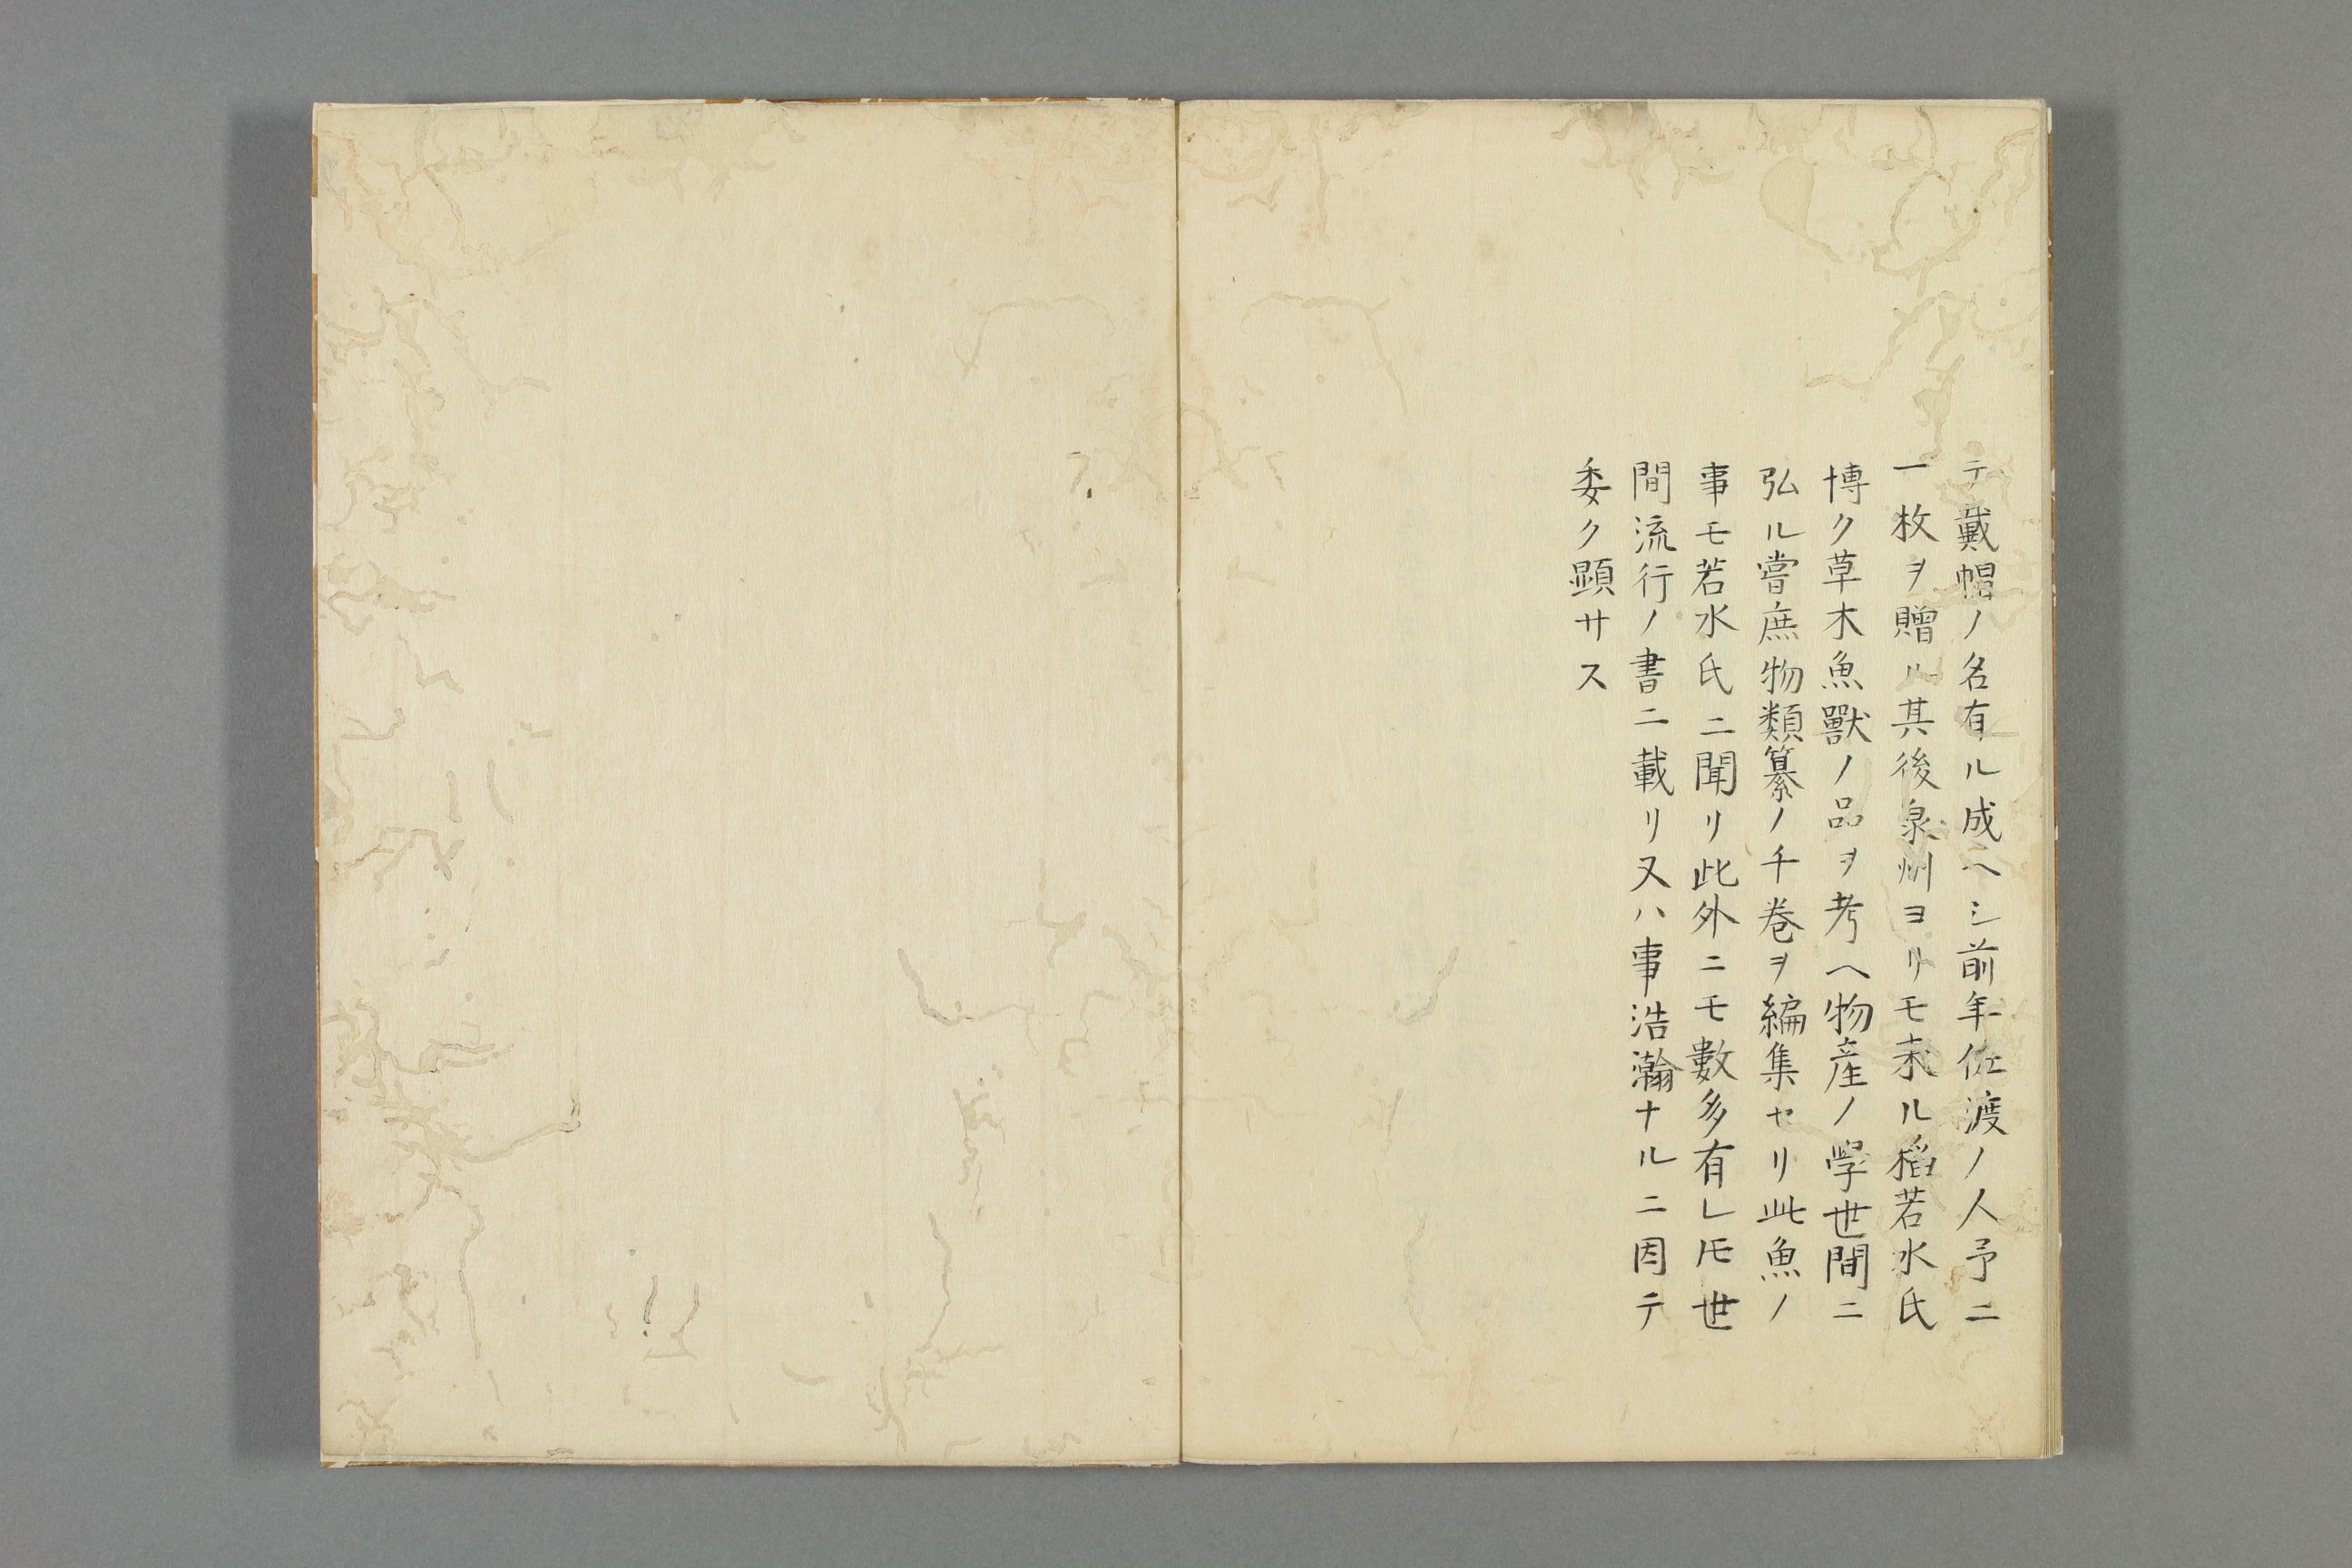 テ戴帽ノ名有ル成ヘシ前年佐渡ノ人予ニ
一枚ヲ贈ル其後泉州ヨリモ来ル稻若水氏
博ク草木魚獸ノ品ヲ考ヘ物産ノ學世間ニ
弘ル嘗庶物類纂ノ千巻ヲ編集セリ此魚ノ
事モ若水氏ニ聞リ此外ニモ數多有レ𪜈世
間流行ノ書ニ載リ又ハ事浩瀚ナルニ因テ
委ク顕サス